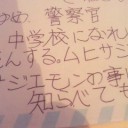 ゆめ 警察官
中学校になれ
とんする。ムヒサシ
ジエモンの事
知らべても